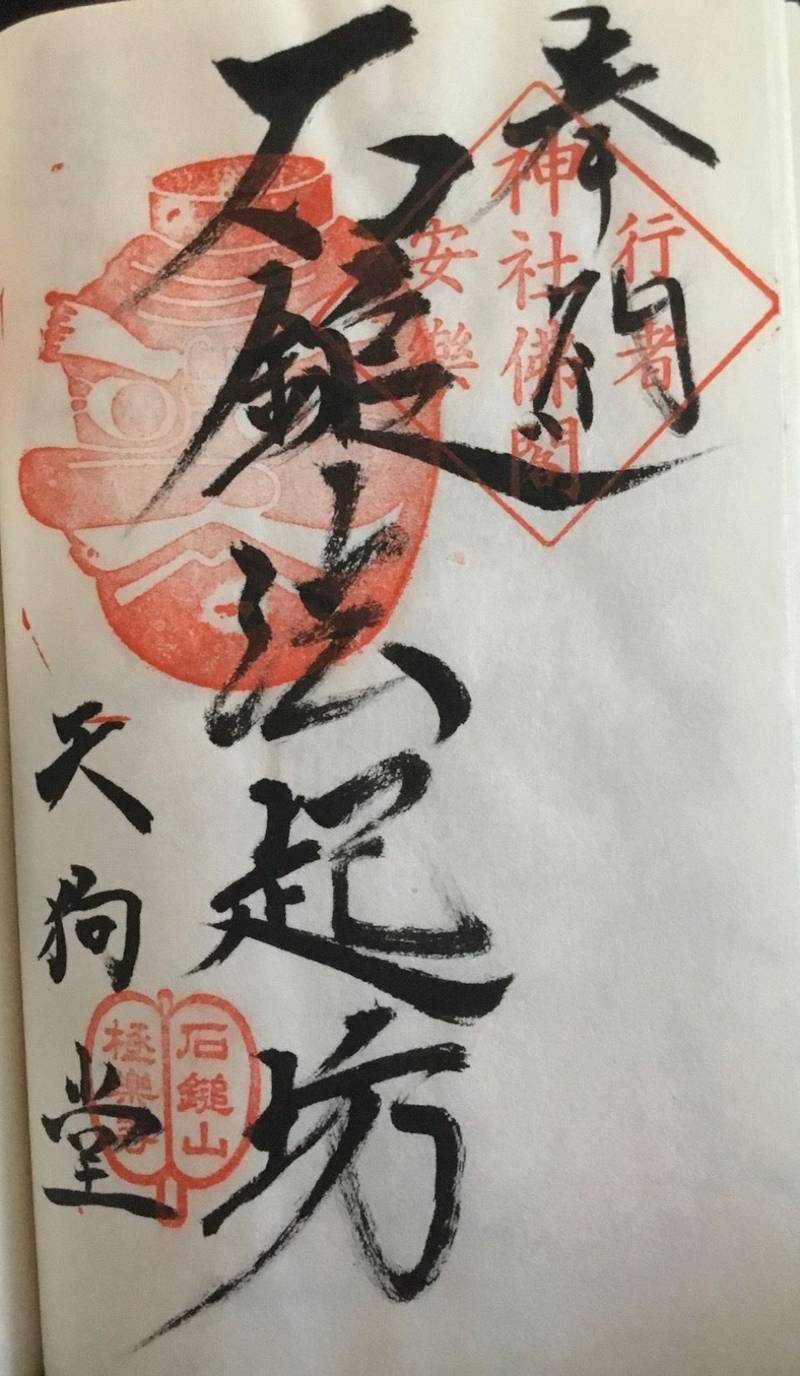 奉
行者
神社佛閣
安樂
石鎚法起坊
天狗堂
石鎚山
極樂寺